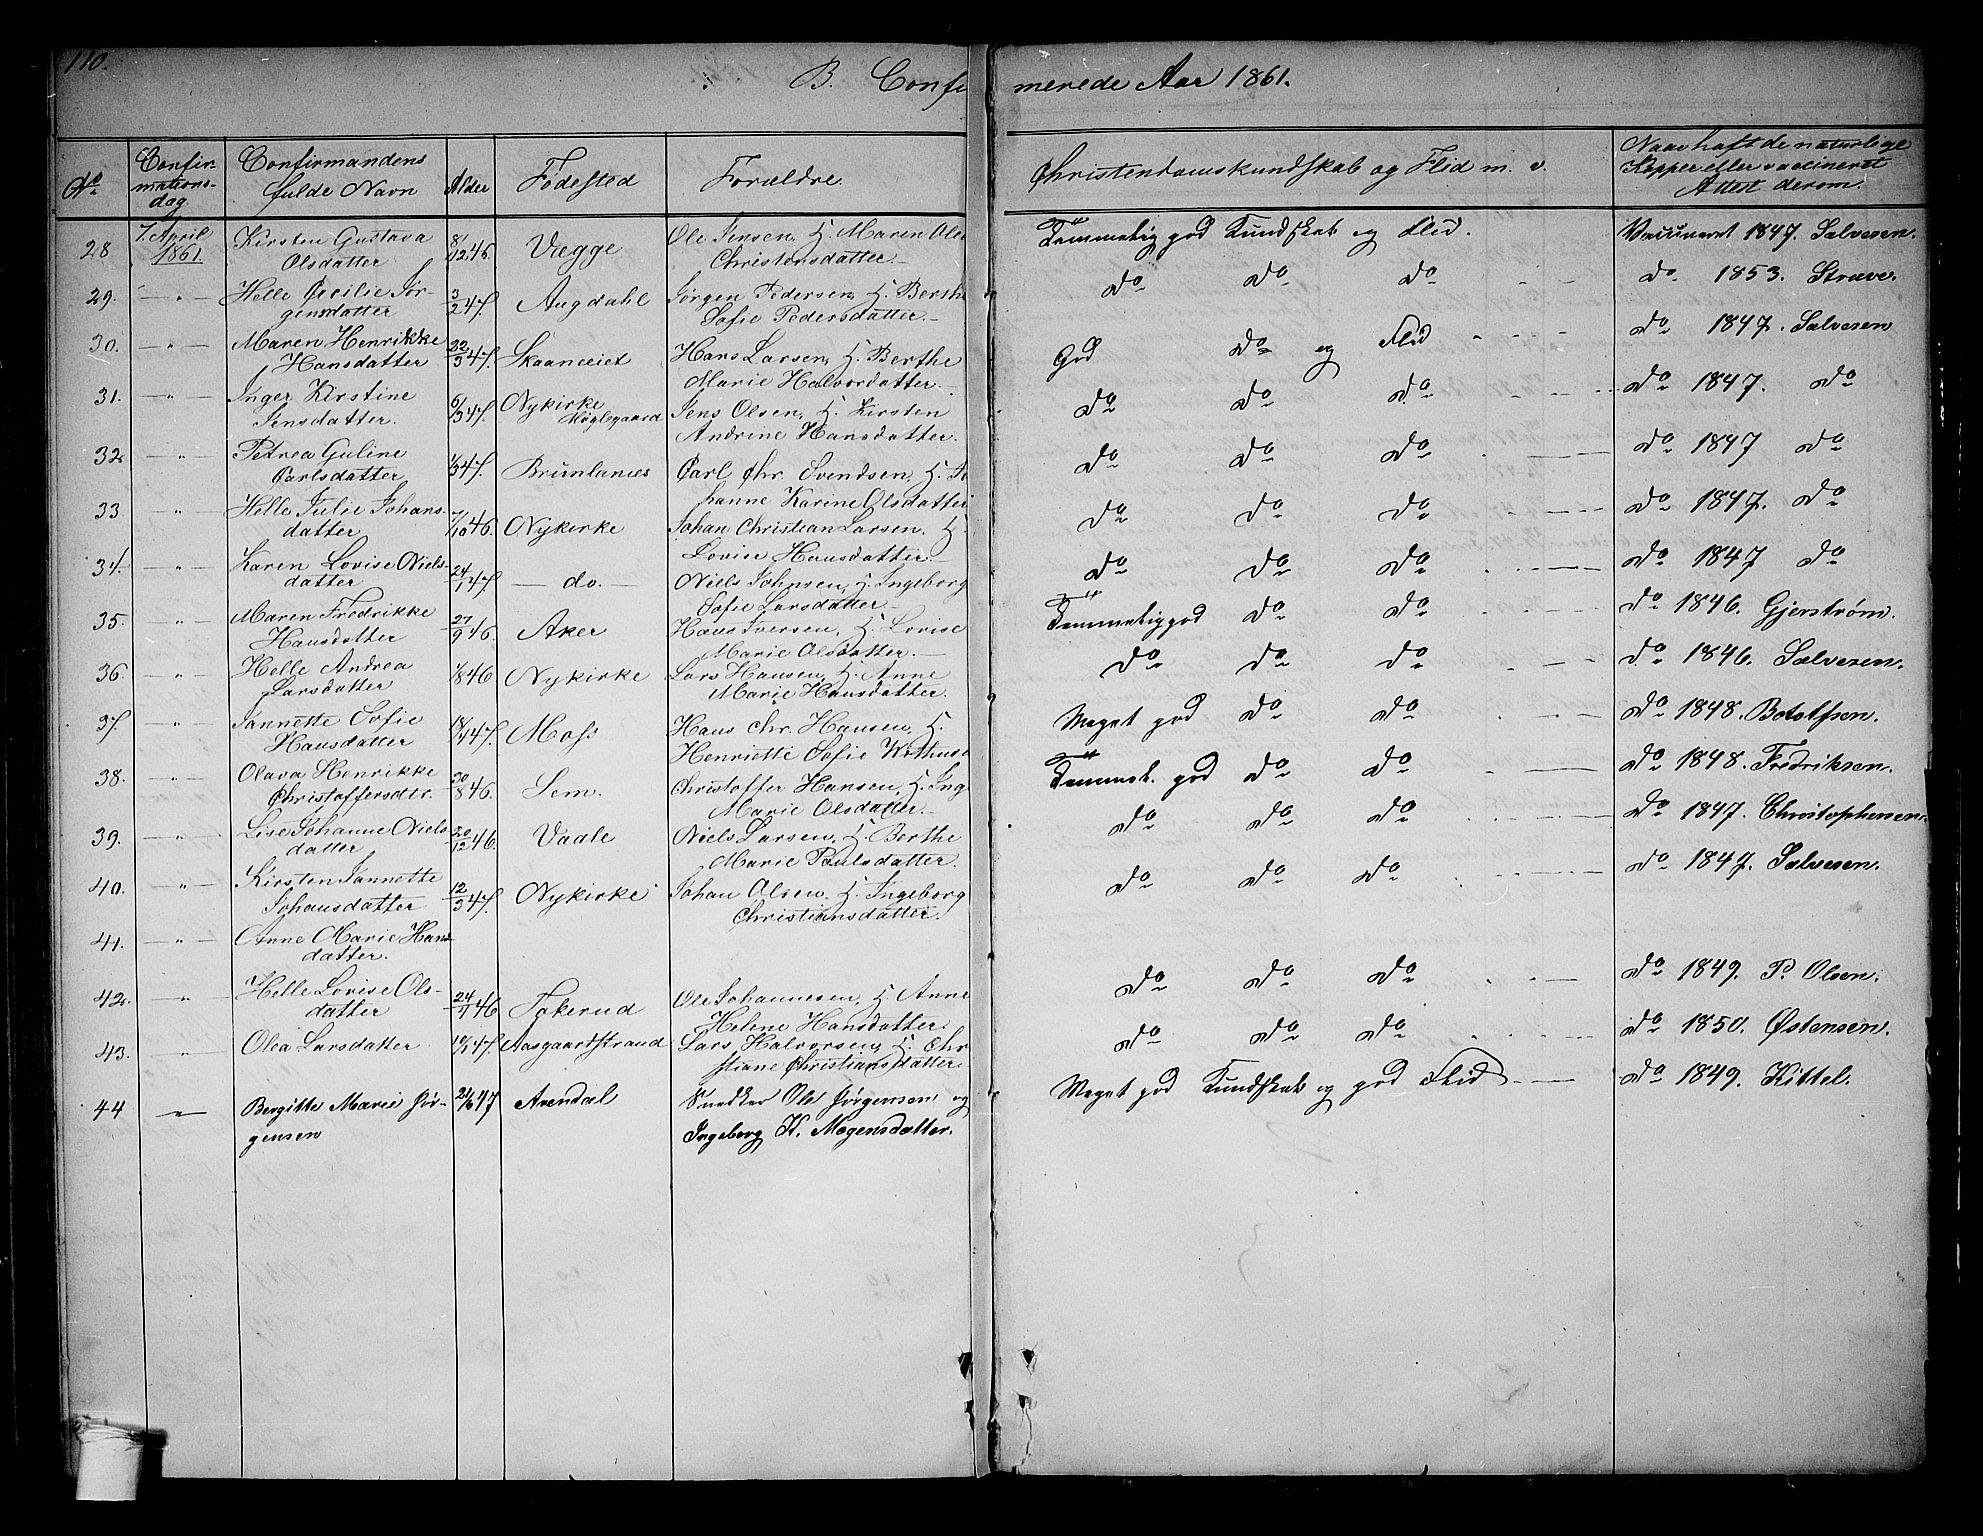 110.
B. Confirmerede Aar 1861.
No Confirmationsdag. Confirmandens fulde Navn Alder Fødested Forældre Christendomskundskab og Flid m. v. Naar haft de naturlige Kopper eller vaccineret Attest derom.
28 7. April 1861. Kirsten Gustava 8/12 46. Vægge Ole Jensen, H. Maren Ole Temmelig god Kundskab og Flid. Vaccineret 1847. Salvesen.
Olsdatter Christensdatter.
29. — " — Helle Cecilie Jør- 3/2 47. Augdahl Jørgen Pedersen, H. Berthe do do do do 1853. Struve.
gensdatter Sofie Pedersdatter.
30. — " — Maren Henrikke 22/3 47. Skaaneeiet Hans Larsen, H. Berthe God do og Flid do 1847. Salvesen
Hansdatter Marie Halvordatter.
31. — " — Inger Kirstine 6/3 47. Nykirke Jens Olsen, H. Kirsten do do do do 1847. do
Jensdatter. Møglegaard Andrine Hansdatter.
32 — " — Petrea Guline 1/3 47. Brunlanæs Carl Chr. Svendsen, H. Jo do do do do 1847 do
Carlsdatter hanne Karine Olsdatter
33. " Helle Julie Johans- 7/10 46. Nykirke Johan Christian Larsen, H. do do do do 1847. do
datter Lovise Hansdatter.
34. — " — Karen Lovise Niels- 24/1 47. — do. — Niels Johnsen, H. Ingeborg do do do do 1847 do
datter Sofie Larsdatter.
35. — " — Maren Fredrikke 27/9 46. Aker Hans Iversen, H. Lovise Temmelig god do do do 1846. Gjerstrøm.
Hansdatter Marie Olsdatter.
36. — " — Helle Andrea 1/8 46 Nykirke Lars Hansen, H. Anne do do do do 1846. Salvesen.
Larsdatter Marie Hansdatter.
37. — " — Jannette Sofie 47. Moss Hans Chr. Hansen, H. Meget god do do do 1848. Bototfsen.
Hansdatter Henriette Sofie
38. " Olava Henrikke 30/8 46. Sem. Christoffer Hansen, H. Ing Temmel. god do do do 1848. Fredriksen.
Christoffersdtr. Marie Olsdatter.
39. — " — Lise Johanne Niels- 20/12 46. Vaale Niels Larsen, H. Berthe do do do do 1847. Christophersen.
datter Marie Paulsdatter
40. — " — Kirsten Jannette 12/3 47. Nykirke Johan Olsen, H. Ingeborg do do do do 1847. Salvesen.
Johansdatter Christiansdatter.
41. — " — Anne Marie Hans-
datter.
42. — " — Helle Lovise Ols- 46 Fokerud Ole Johannesen, H. Anne do do do do 1849. P. Olsen.
datter Helene Hansdatter.
43. — " — Olea Larsdatter 47. Aasgaartstrand Lars Halvorsen, H. Chr do do do do 1850. Østensen.
stiane Christiansdatter.
44 — " — Bergitte Marie Jør- 47 Arendal Snedker Ole Jørgensen og Meget god Kundskab og god Flid do 1849. Kittel.
gensen Ingeborg K. Mogensdatter.